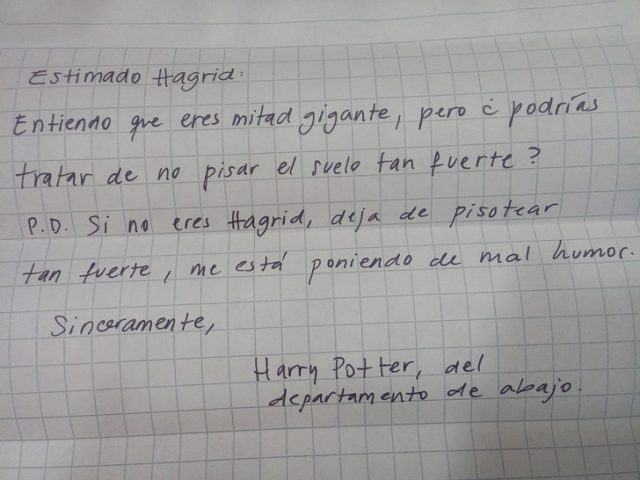 Estimado Hagrid:
Entiendo que eres mitad gigante, pero ¿podrías
tratar de no pisar el suelo tan fuerte?
P.D. Si no eres Hagrid, deja de pisotear
tan fuerte, me está poniendo de mal humor.
Sinceramente,
Harry Potter, del
departamento de abajo.